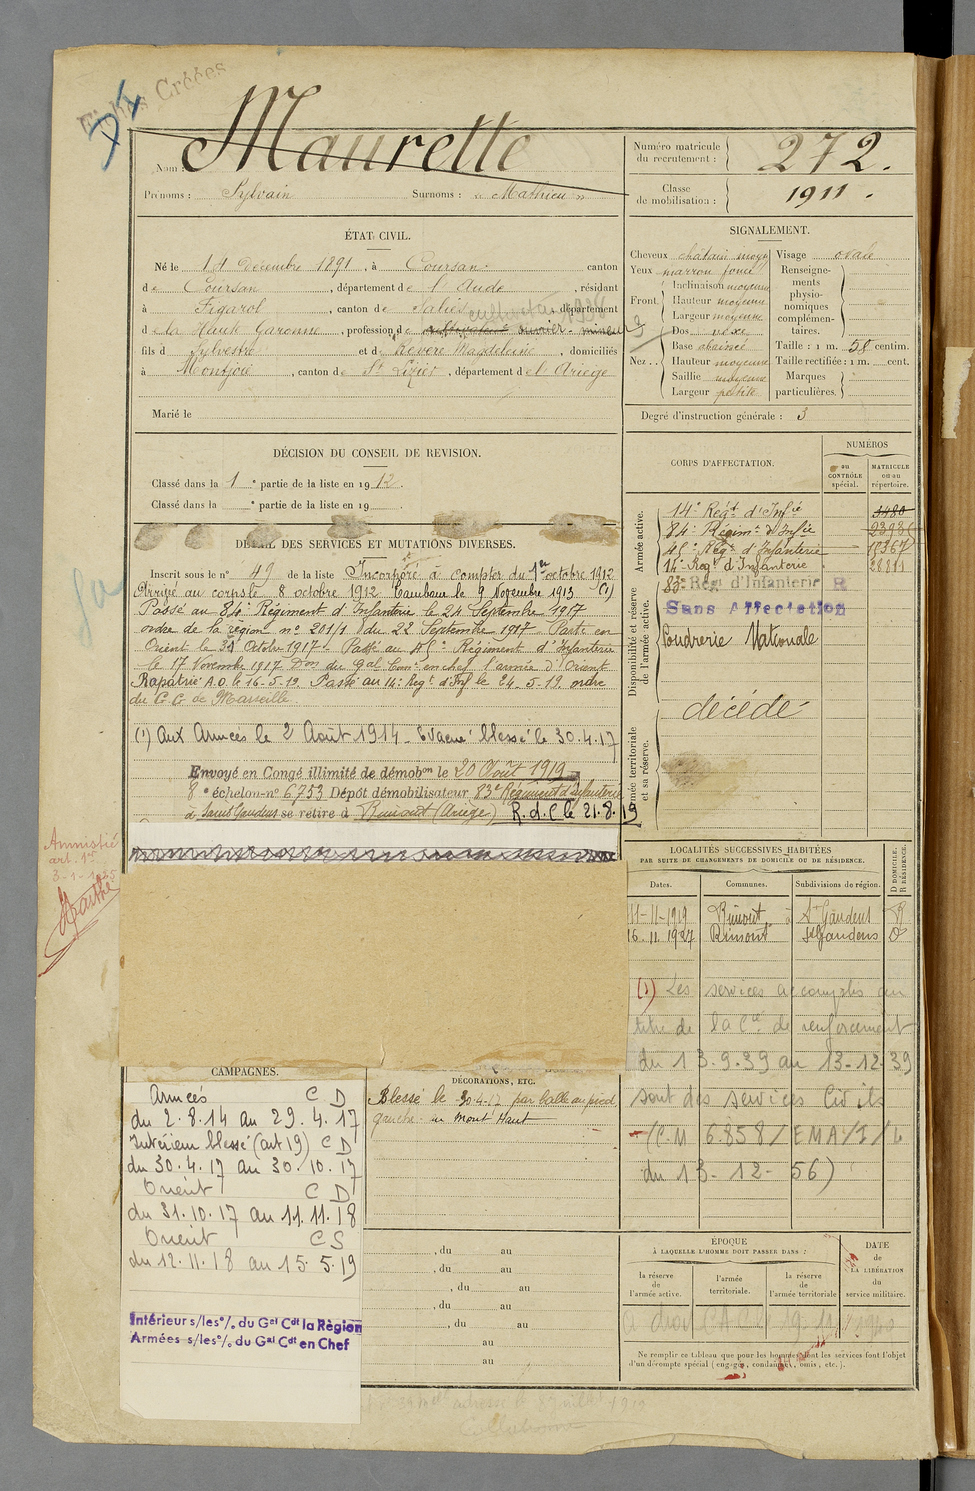 Fiches Créées
Nom : Maurette
Numéro matricule du recrutement : 272.
Prénoms : Sylvain Surnoms : « Mathieu »
Classe de mobilisation : 1911.
ÉTAT CIVIL.
Né le 14 décembre 1891, à Coursan, canton
de Coursan, département de l'Aude, résidant
à Figarol, canton de Salies, département
de la Haute Garonne, profession de cultivateur ouvrier-mineur
fils de Sylvestre et de Magdeleine, domiciliés
à Montjoie, canton de St Lizier, département de l'Ariège
Marié le
SIGNALEMENT.
Cheveux châtain moyen
Yeux marron foncé
Front. Inclinaison moyenne
Hauteur moyenne
Largeur moyenne
Nez. Dos vexe
Base abaissée
Hauteur moyenne
Saillie moyenne
Largeur petite
Visage ovale
Renseignements physionomiques complémentaires.
Taille : 1 m. centim.
Taille rectifiée : 1 m. cent.
Marques particulières.
Degré d'instruction générale : 3
DÉCISION DU CONSEIL DE REVISION.
Classé dans la 1e partie de la liste en 1912.
Classé dans la e partie de la liste en 19 .
DÉTAIL DES SERVICES ET MUTATIONS DIVERSES.
Inscrit sous le n° 49 de la liste Incorporé à compter du 1er octobre 1912
Arrivé au corps le 8 octobre 1912. Tambour le 9 Novembre 1913 (1)
Passé au 84e Régiment d'Infanterie le 24 Septembre 1917
ordre de la région n° 201/1 du 22 Septembre 1917. Parti en
Orient le 31 Octobre 1917. Passé au 45e Régiment d'Infanterie
le 17 Novembre 1917. Don du Gal Comt en chef l'armée d'Orient
Rapatrié A.O. le 16-5-19. Passé au 14e Regt d'Inf. le 24-5-19. ordre
du G.G. de Marseille.
(1) Aux Armées le 2 Août 1914 - Evacué blessé le 30.4.17
Envoyé en Congé illimité de démobon le 20 Août 1919
8e échelon-no 6753 Dépôt démobilisateur 83e Régiment d'Infanterie
à Saint Gaudens se retire à Rimont (Ariège) R.d.C le 21.8.19
CORPS D'AFFECTATION.
NUMÉROS
au CONTRÔLE spécial.
MATRICULE ou au répertoire.
Armée active.
14e Regt d'Infie 3480
84e Régimt d'Infie
45e Regt d'Infanterie
14e Regt d'Infanterie
Disponibilité et réserve de l'armée active.
83e Rég. d'Infanterie R
Sans Affectation
Poudrerie Nationale
Armée territoriale et sa réserve.
décédé
Amnistié
art. 1er
3-1-1925
LOCALITÉS SUCCESSIVES HABITÉES
PAR SUITE DE CHANGEMENTS DE DOMICILE OU DE RÉSIDENCE.
Dates. Communes. Subdivisions de région. D DOMICILE. R RÉSIDENCE.
11-11-1919 Rimont St Gaudens R
16.11.1927 Rimont St Gaudens D
(1) Les services accomplis au
titre de la Cie de renforcement
du 13-9-39 au 13-12-39
sont des services Civils
(C.M 6.858/EMA/I/L
du 13-12-56)
CAMPAGNES.
Armées C D
du 2.8.14 au 29.4.17
Intérieur blessé (art 19) C D
du 30.4.17 au 30.10.17
Orient C D
du 31.10.17 au 11.11.18
Orient C S
du 12.11.18 au 15.5.19
Intérieur s/les o/o du Gal Cdt la Région
Armées s/les o/o du Gal Cdt en Chef
DÉCORATIONS, ETC.
Blessé le 30.4.17 par balle au pied
gauche au Mont Haut
, du au
, du au
, du au
, du au
, du au
au
au
ÉPOQUE
À LAQUELLE L'HOMME DOIT PASSER DANS :
la réserve de l'armée active.
l'armée territoriale.
la réserve de l'armée territoriale
DATE de LA LIBÉRATION du service militaire.
Ne remplir ce tableau que pour les hommes dont les services font l'objet
d'un décompte spécial (engagés, condamnés, omis, etc.).